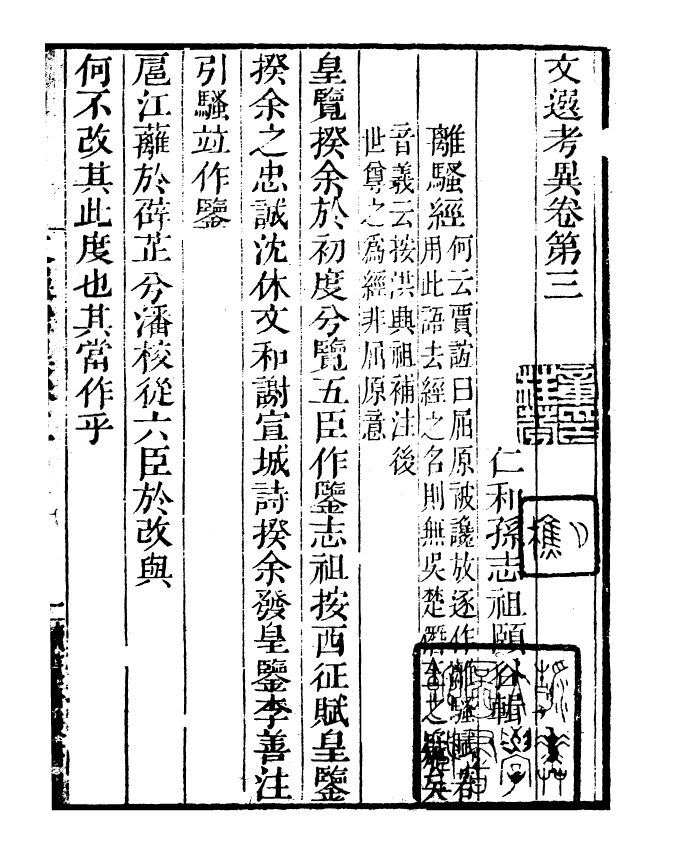 文選考異卷第三
仁和孫志祖頤谷輯
離騷經
何云賈誼曰屈原被讒放逐作離騷賦若
用此語去經之名則無吳楚僭之矣
音義云按洪興祖補注後
世尊之爲經非屈原意
皇覽揆余於初度兮覽五臣作鑒志祖按西征賦皇鑒
揆余之忠誠沈休文和謝宣城詩揆余發皇鑒李善注
引騷竝作鑒
扈江蘺於薜芷兮潘校從六臣於改與
何不改其此度也其當作乎